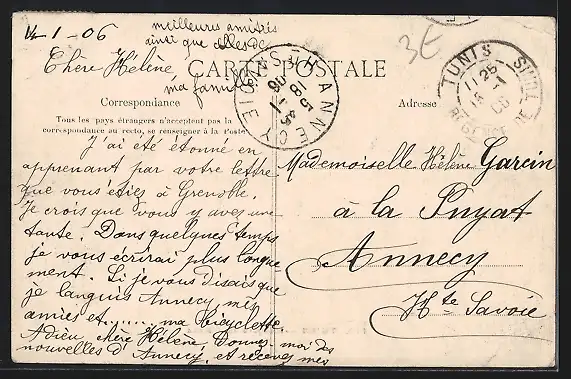 14-1-06
meilleures amitiés
ainsi que celles de
ma famille
3E
Chère Hélène
CARTE POSTALE
Correspondance
Adresse
Tous les pays étrangers n'acceptent pas la
correspondance au recto, se renseigner à la Poste
J'ai été étonné en
apprenant par votre lettre
que vous étiez à Grenoble.
Je crois que vous y avez une
tante. Dans quelques temps
je vous écrirai plus longue
ment. Si je vous disais que
je languis Annecy, mes
amies et ........ ma bicyclette
Adieu, chère Hélène, Donnez moi des
nouvelles d'Annecy, et recevez mes
ANNECY
SAVOIE
5 45
18 -1
06
TUNIS
11 25
15 -1
06
REGENCE DE
Mademoiselle Hélène Garcin
à la Puyat
Annecy
Hte Savoie